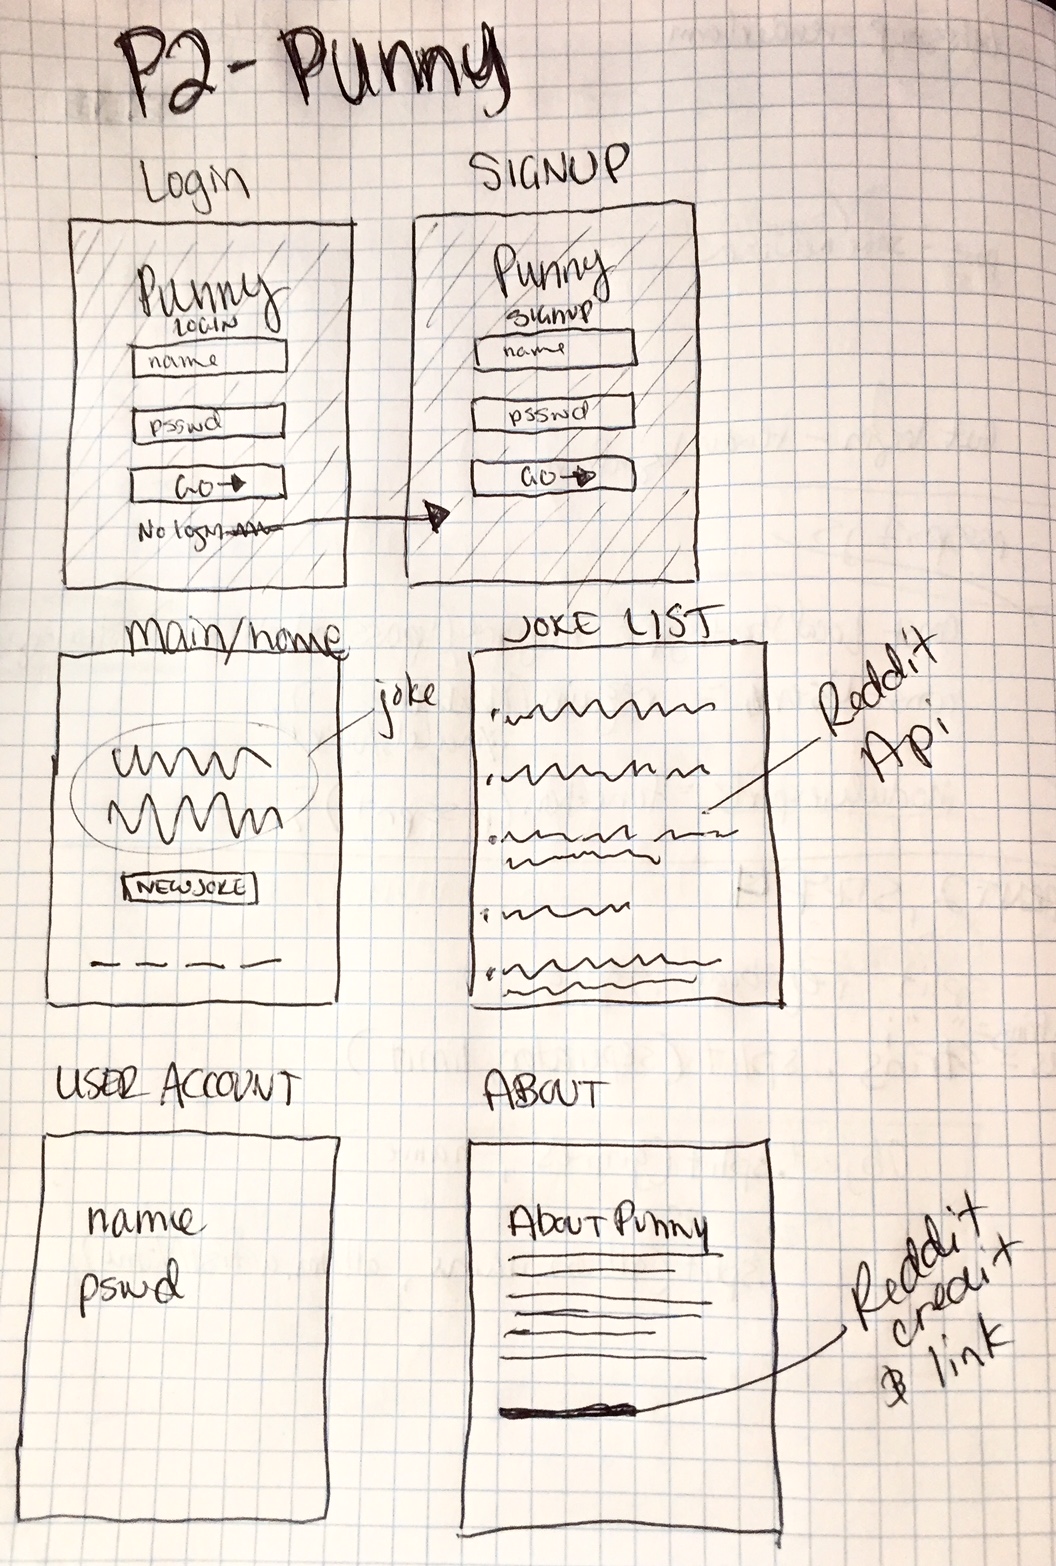 P2 - Punny
Login
SIGNUP
Punny
LOGIN
name
psswd
GO
No login
Punny
SIGNUP
name
psswd
GO
main/home
joke
NEW JOKE
JOKE LIST
Reddit
Api
USER ACCOUNT
name
pswd
ABOUT
ABOUT Punny
Reddit
credit
& link